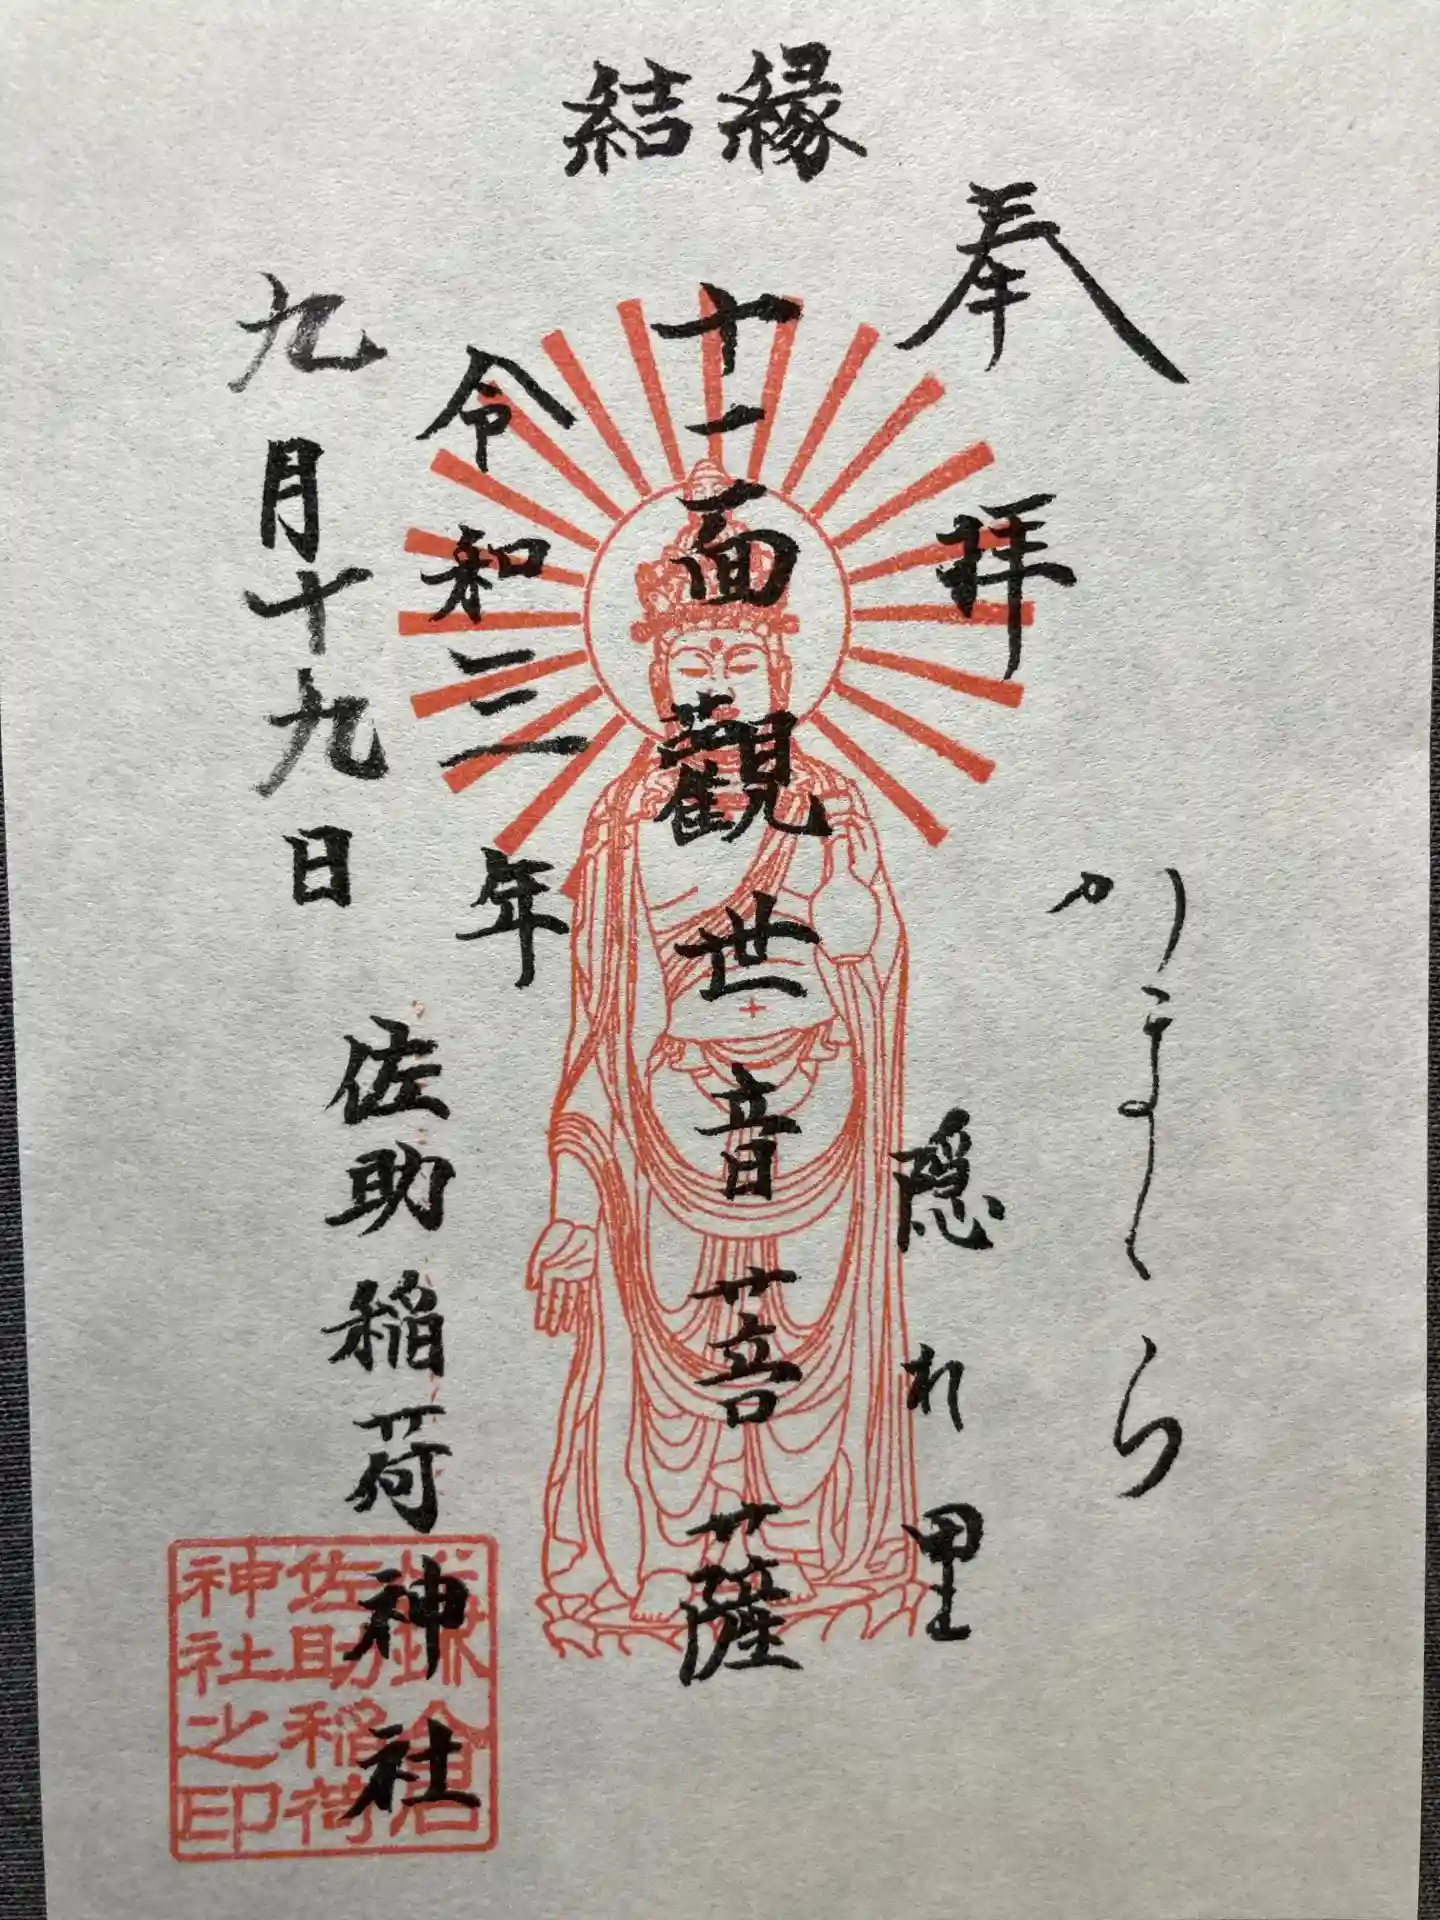 結縁
奉拝
かまくら
隠れ里
十一面觀世音菩薩
令和三年
九月十九日
佐助稲荷神社
鎌倉
佐助稲荷
神社之印